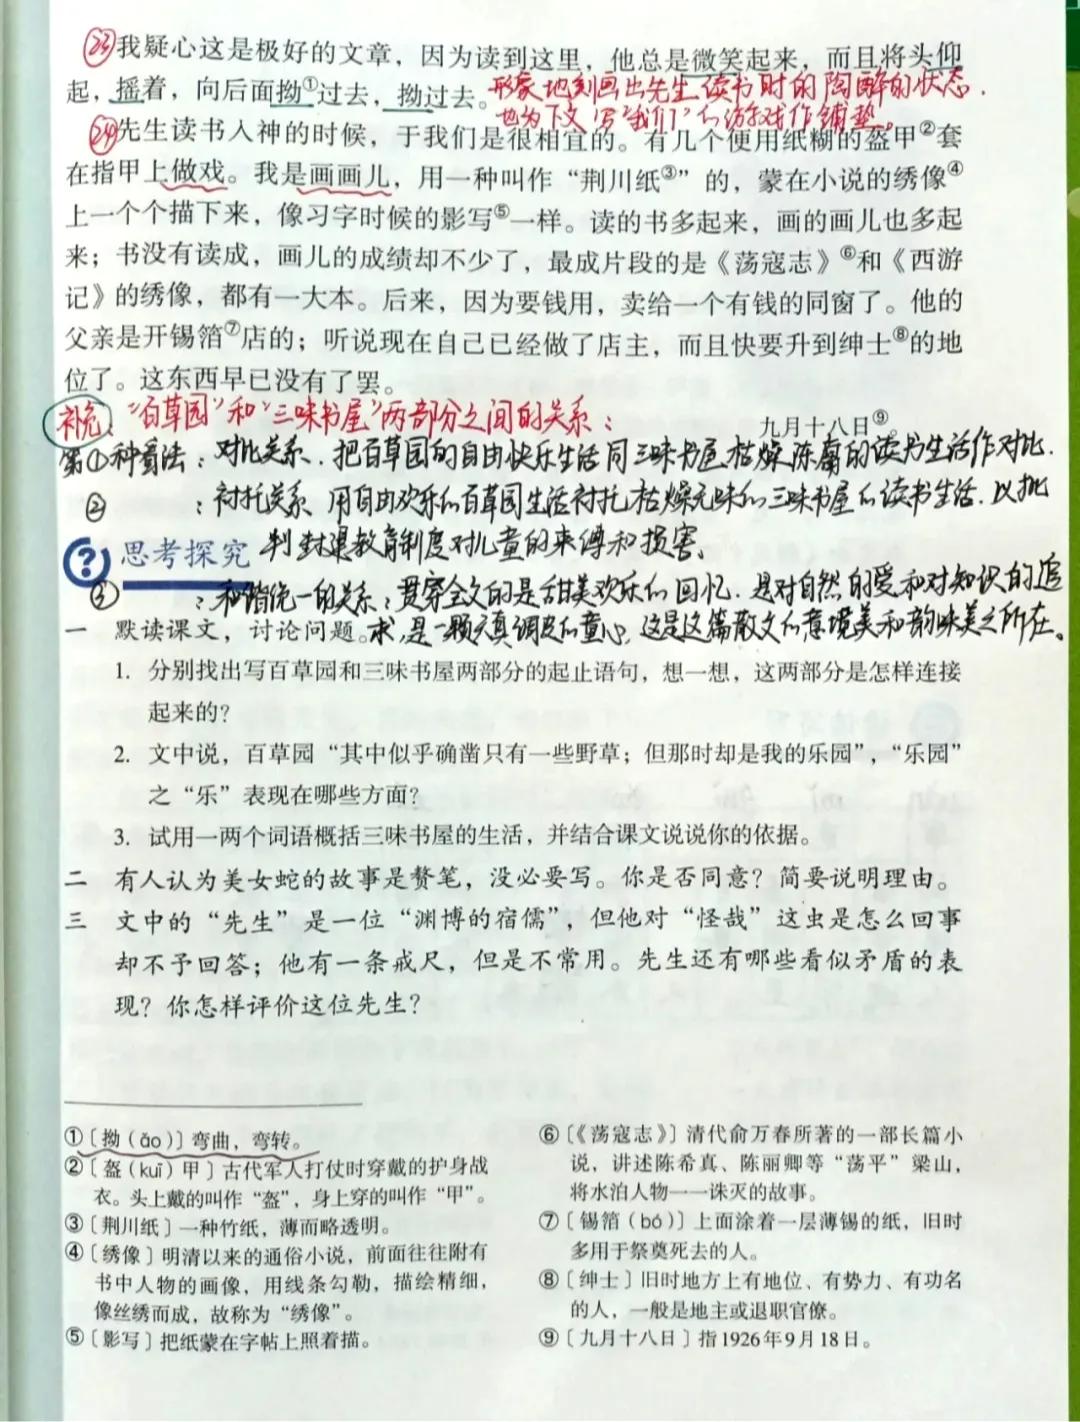 ㉓我疑心这是极好的文章，因为读到这里，他总是微笑起来，而且将头仰
起，摇着，向后面拗①过去，拗过去。
形象地刻画出先生读书时的陶醉的状态.
也为下文写“我们”的游戏作铺垫。
㉔先生读书入神的时候，于我们是很相宜的。有几个便用纸糊的盔甲②套
在指甲上做戏。我是画画儿，用一种叫作“荆川纸③”的，蒙在小说的绣像④
上一个个描下来，像习字时候的影写⑤一样。读的书多起来，画的画儿也多起
来；书没有读成，画儿的成绩却不少了，最成片段的是《荡寇志》⑥和《西游
记》的绣像，都有一大本。后来，因为要钱用，卖给一个有钱的同窗了。他的
父亲是开锡箔⑦店的；听说现在自己已经做了店主，而且快要升到绅士⑧的地
位了。这东西早已没有了罢。
补充：“百草园”和“三味书屋”两部分之间的关系：
九月十八日⑨。
第①种看法：对比关系.把百草园的自由快乐生活同三味书屋枯燥陈腐的读书生活作对比.
②：衬托关系 用自由欢乐的百草园生活衬托枯燥无味的三味书屋的读书生活.以批
判封建教育制度对儿童的束缚和损害、
思考探究
③：和谐统一的关系：贯穿全文的是甜美欢乐的回忆.是对自然的爱和对知识的追
求,是一颗天真调皮的童心.这是这篇散文的意境美和韵味美之所在。
一 默读课文，讨论问题。
1. 分别找出写百草园和三味书屋两部分的起止语句，想一想，这两部分是怎样连接
起来的？
2. 文中说，百草园“其中似乎确凿只有一些野草；但那时却是我的乐园”，“乐园”
之“乐”表现在哪些方面？
3. 试用一两个词语概括三味书屋的生活，并结合课文说说你的依据。
二 有人认为美女蛇的故事是赘笔，没必要写。你是否同意？简要说明理由。
三 文中的“先生”是一位“渊博的宿儒”，但他对“怪哉”这虫是怎么回事
却不予回答；他有一条戒尺，但是不常用。先生还有哪些看似矛盾的表
现？你怎样评价这位先生？
①〔拗（ǎo）〕弯曲，弯转。
②〔盔（kuī）甲〕古代军人打仗时穿戴的护身战
衣。头上戴的叫作“盔”，身上穿的叫作“甲”。
③〔荆川纸〕一种竹纸，薄而略透明。
④〔绣像〕明清以来的通俗小说，前面往往附有
书中人物的画像，用线条勾勒，描绘精细，
像丝绣而成，故称为“绣像”。
⑤〔影写〕把纸蒙在字帖上照着描。
⑥〔《荡寇志》〕清代俞万春所著的一部长篇小
说，讲述陈希真、陈丽卿等“荡平”梁山，
将水泊人物一一诛灭的故事。
⑦〔锡箔（bó）〕上面涂着一层薄锡的纸，旧时
多用于祭奠死去的人。
⑧〔绅士〕旧时地方上有地位、有势力、有功名
的人，一般是地主或退职官僚。
⑨〔九月十八日〕指1926年9月18日。